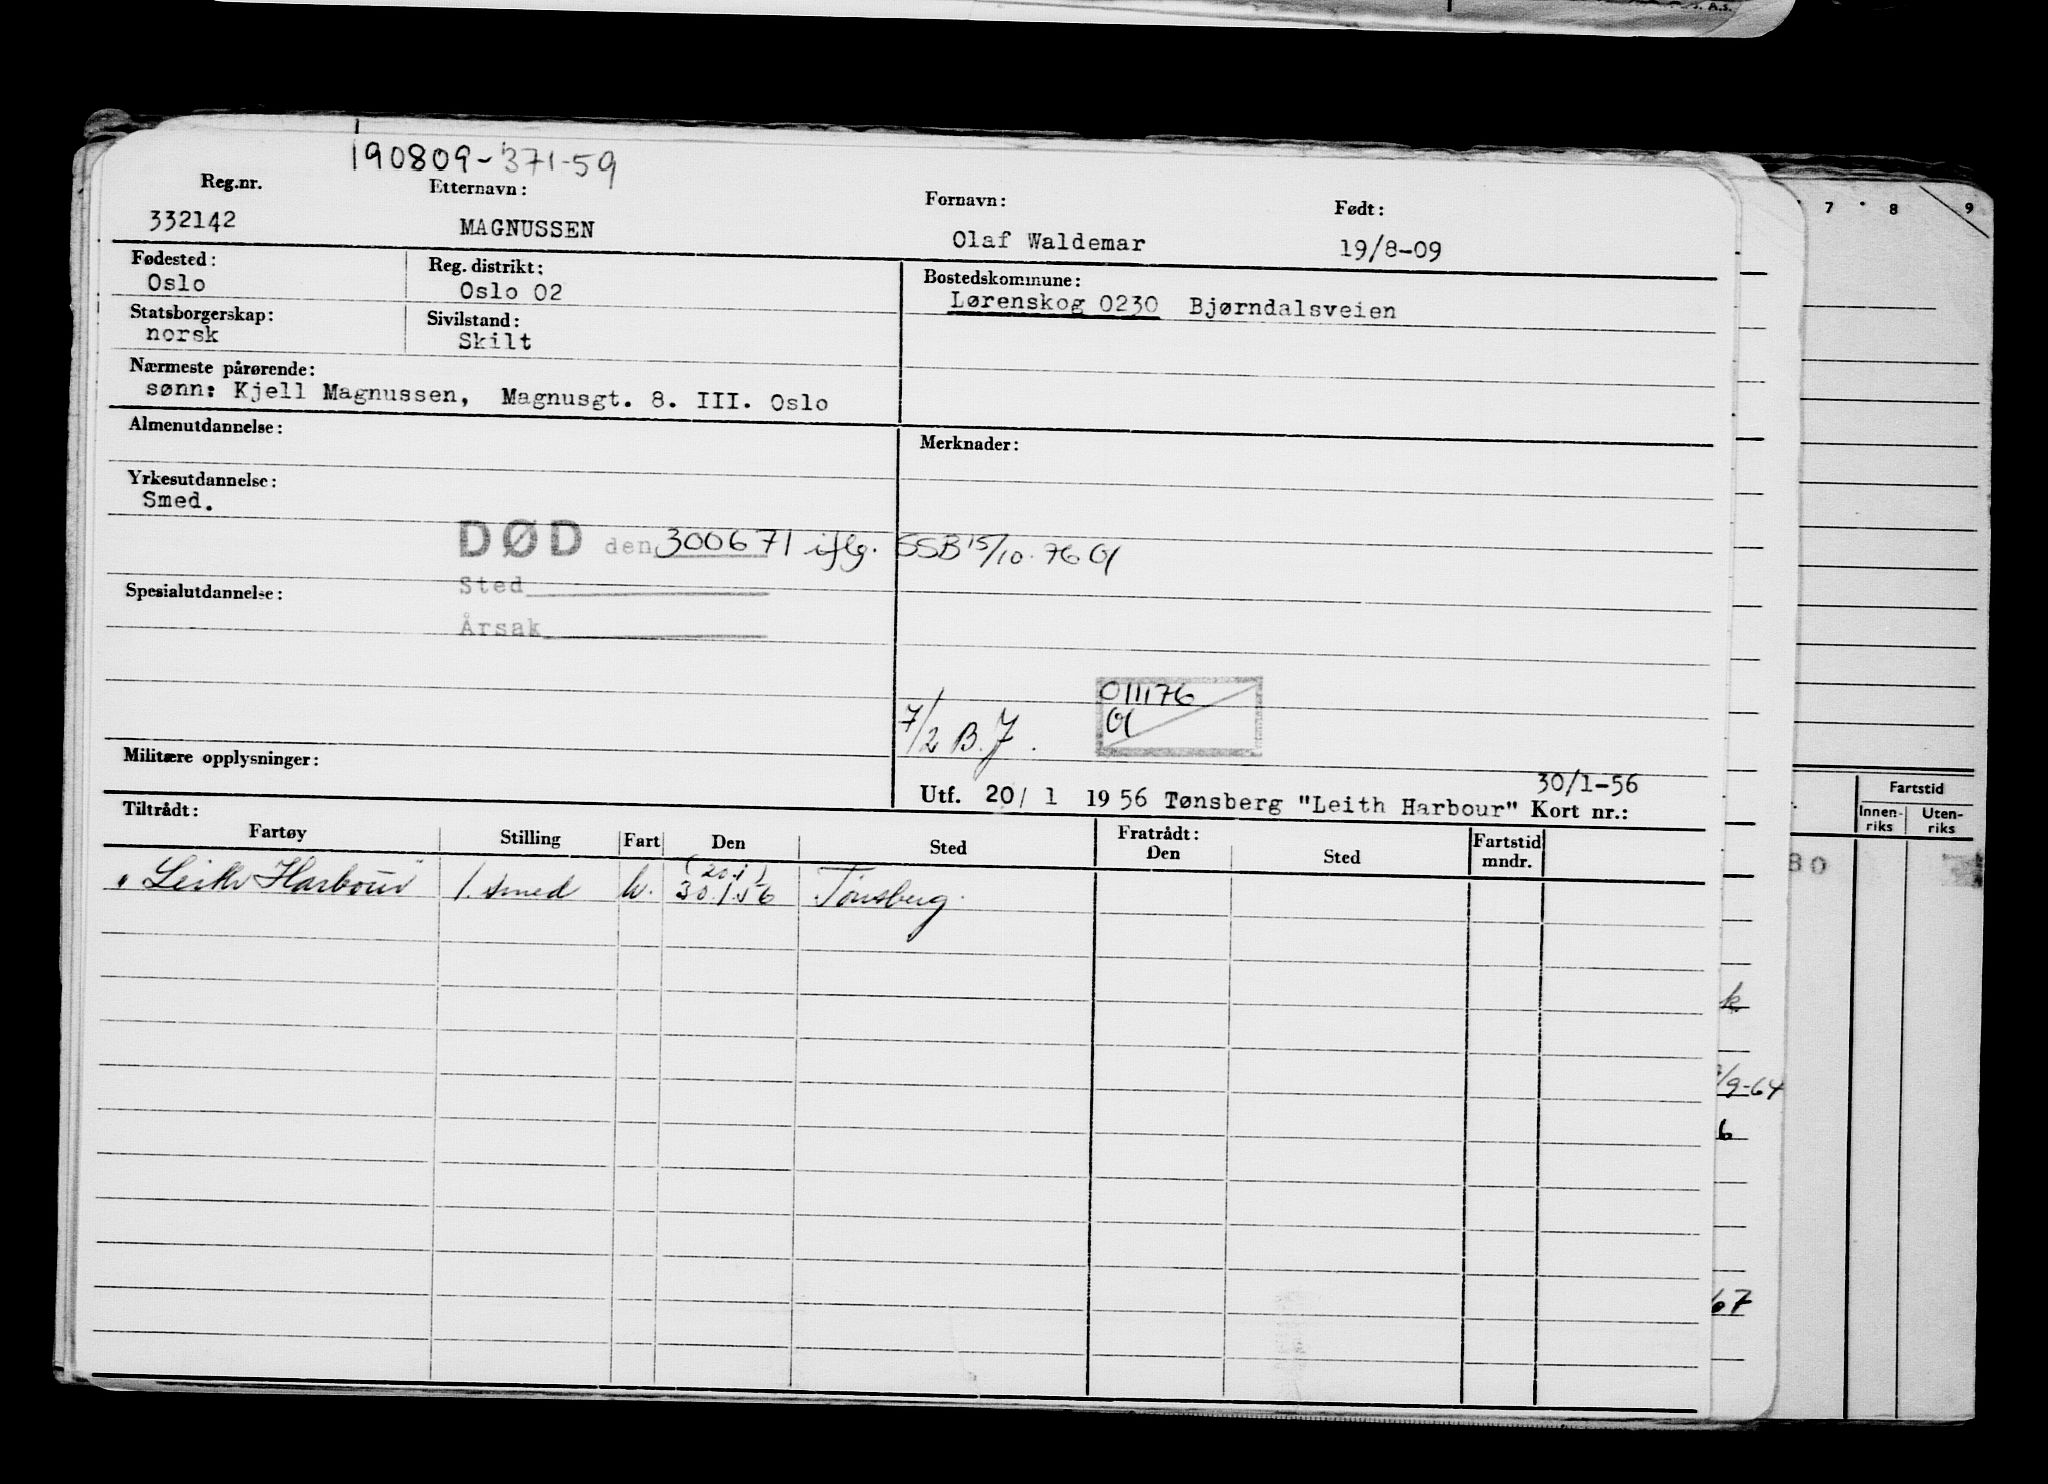 S. A.s.
190809-371-59
Reg.nr. Etternavn: Fornavn: Født:
332142 MAGNUSSEN Olaf Waldemar 19/8-09
Fødested: Reg. distrikt: Bostedskommune:
Oslo Oslo 02 Lørenskog 0230 Bjørndalsveien
Statsborgerskap: Sivilstand:
norsk Skilt
Nærmeste pårørende:
sønn: Kjell Magnussen, Magnusgt. 8. III. Oslo
Almenutdannelse: Merknader:
Yrkesutdannelse:
Smed.
DØD den 300671 iflg. SSB 15/10.76
Spesialutdannelse: Sted
Årsak
011176
7/2 B.J.
Militære opplysninger:
30/1-56
Utf. 20/ 1 1956 Tønsberg "Leith Harbour" Kort nr.:
Tiltrådt: Fratrådt:
Fartøy Stilling Fart Den Sted Den Sted Fartstid mndr.
(20.1)
"Leith Harbour" 1. smed h. 30.1.56 Tønsberg.
7 8 9
Fartstid
Innen-riks Uten-riks
80
k
/9-64
6
67